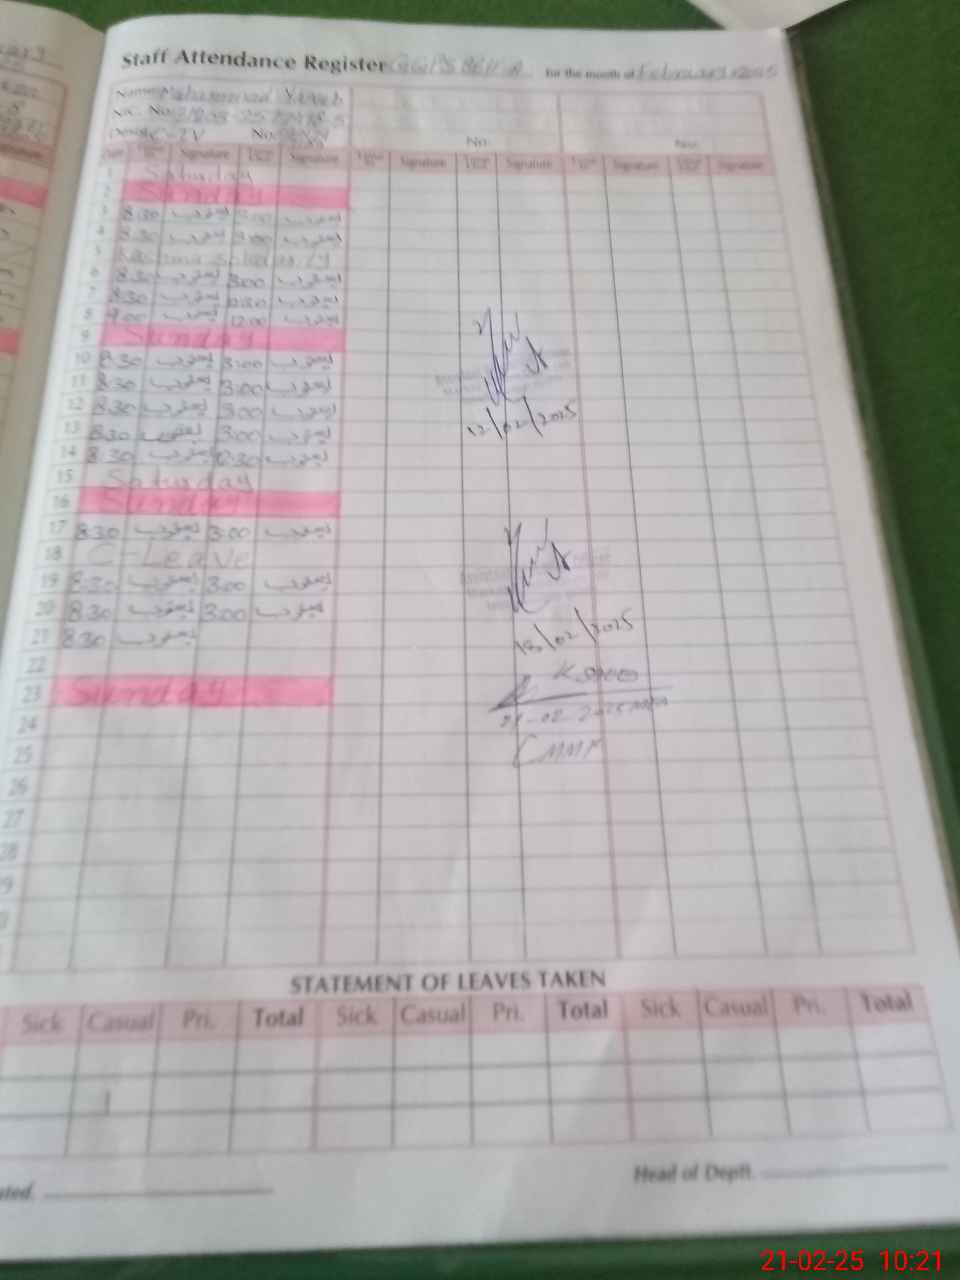 Staff Attendance Register for the month of February 2025
Name Muhammad
No.
No. No.
Signature Signature Signature Signature Signature Signature
1 Saturday
2 Sunday
3 8:30 یعقوب 3:00 یعقوب
4 8:30 یعقوب 3:00 یعقوب
5
6 8:30 یعقوب 3:00 یعقوب
7 8:30 یعقوب 12:30 یعقوب
8 9:00 یعقوب 12:00 یعقوب
9 Sunday
10 8:30 یعقوب 3:00 یعقوب
11 8:30 یعقوب 3:00 یعقوب
12 8:30 یعقوب 3:00 یعقوب
12/02/2025
13 8:30 یعقوب 3:00 یعقوب
14 8:30 یعقوب 12:30 یعقوب
15 Saturday
16 Sunday
17 8:30 یعقوب 3:00 یعقوب
18 C-Leave
19 8:30 یعقوب 3:00 یعقوب
20 8:30 یعقوب 3:00 یعقوب
21 8:30 یعقوب
18/02/2025
22
23 Sunday
21-02-2025
24
25
26
27
28
29
STATEMENT OF LEAVES TAKEN
Sick Casual Pri. Total Sick Casual Pri. Total Sick Casual Pri. Total
1
Head of Deptt.
21-02-25 10:21